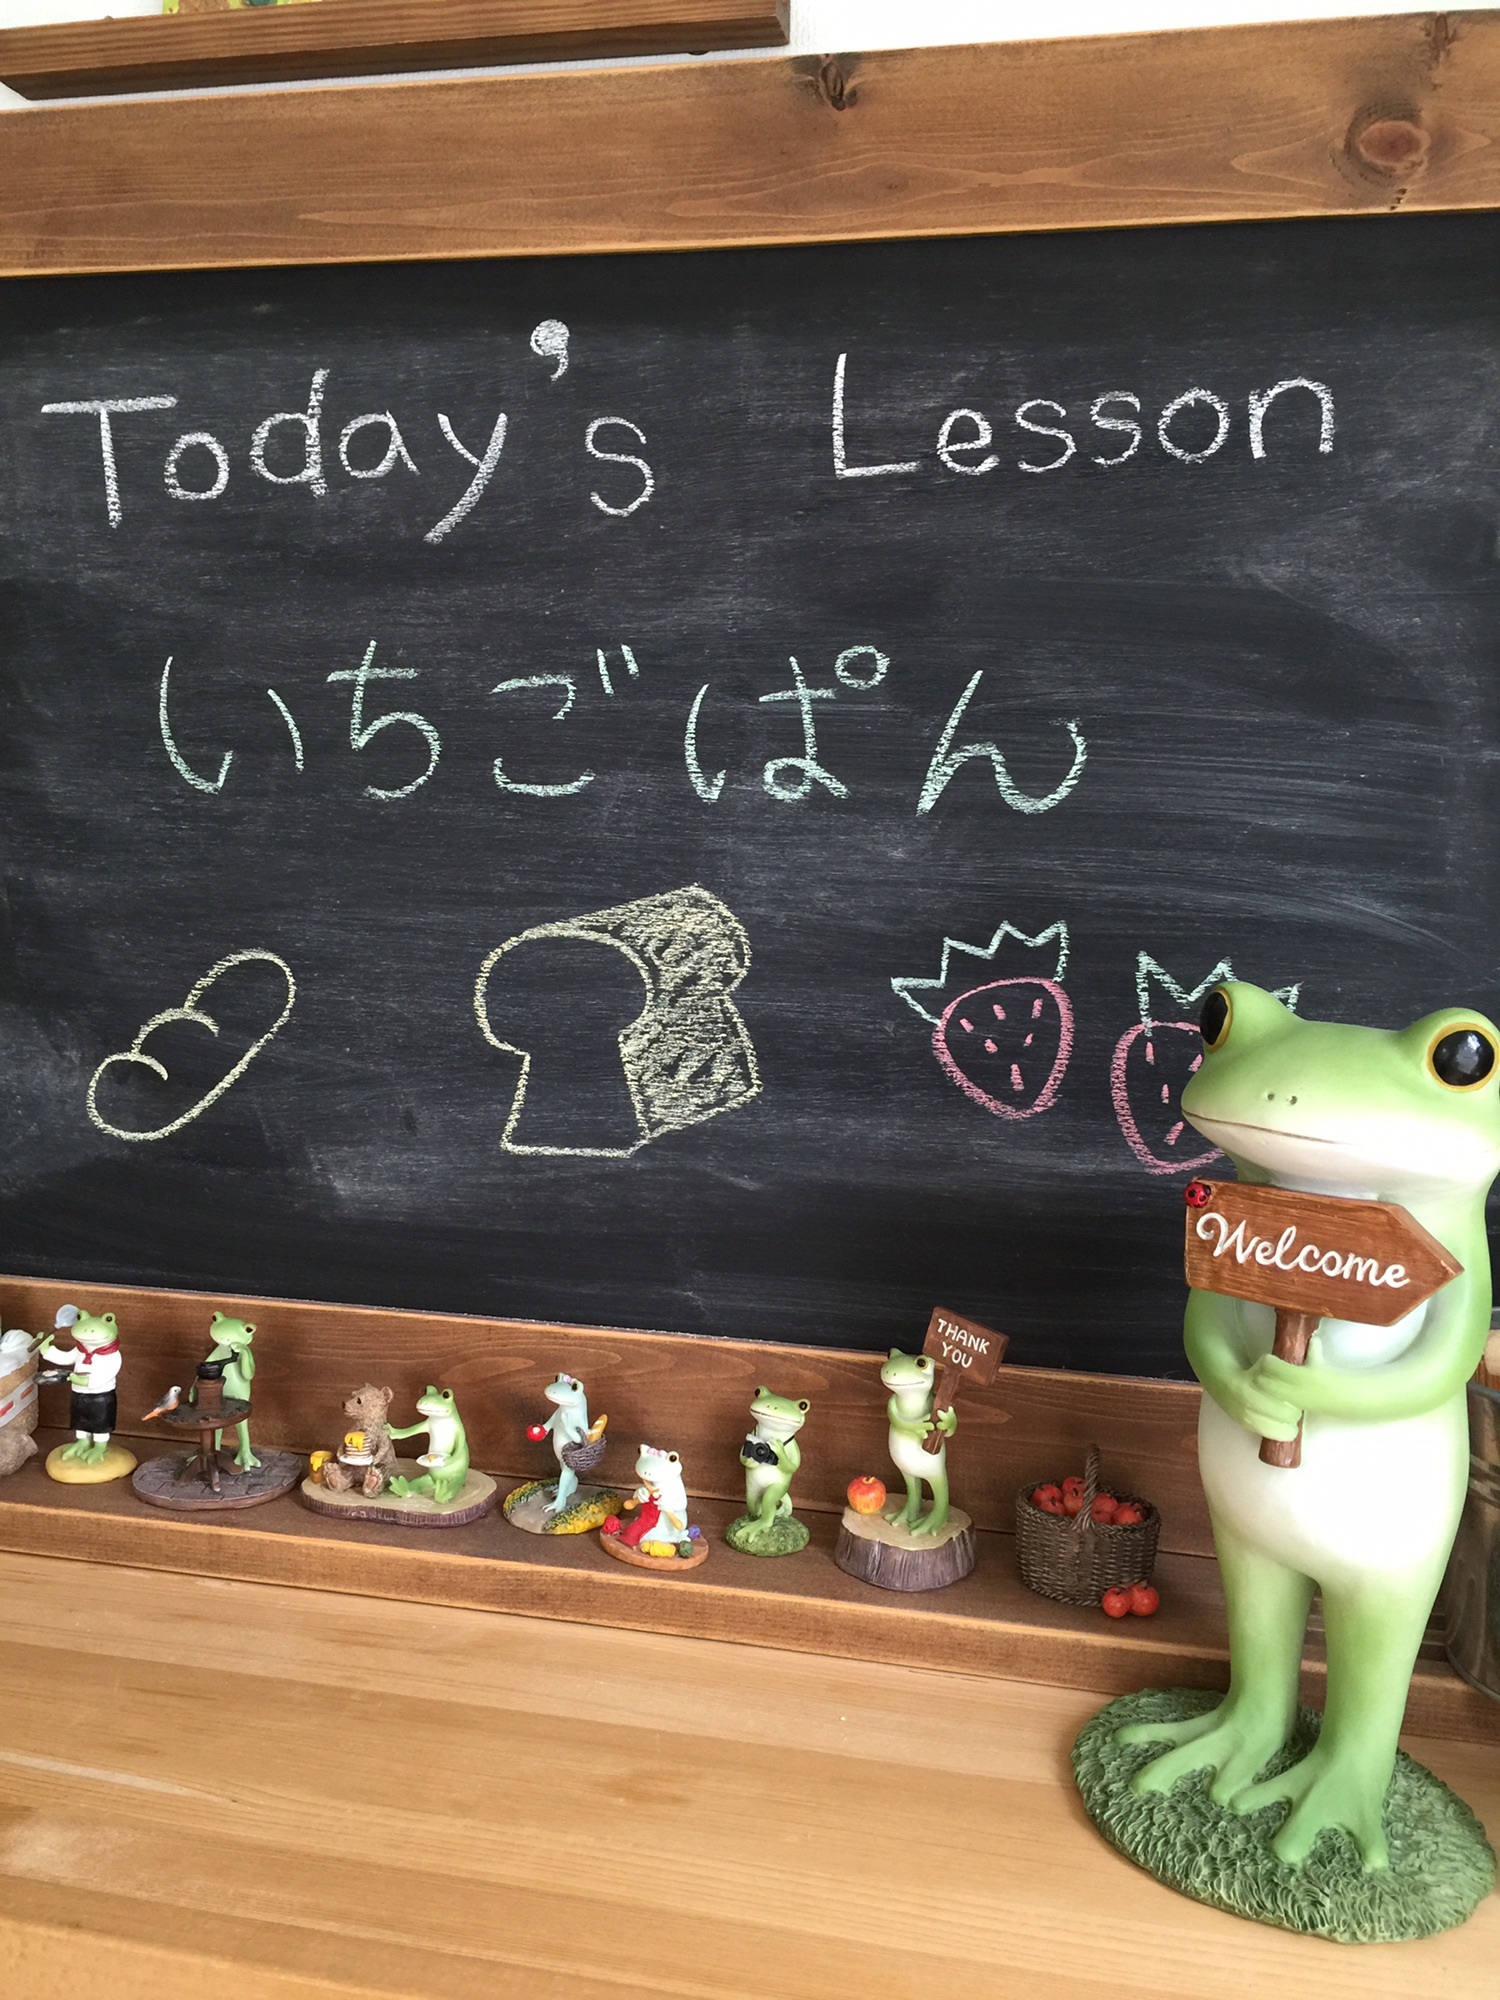 Today's Lesson
いちごぱん
Welcome
THANK
YOU